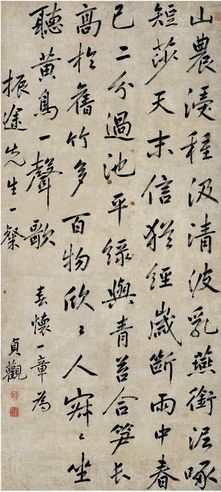 山農漬種汲清波乳燕銜泥啄
短莎天末信猶經歲斷雨中春
已二分過池平綠與青苔合筍長
高於舊竹多百物欣〻人寂〻坐
聽黃鳥一聲歌 春懷一章為
振途先生一粲 貞觀